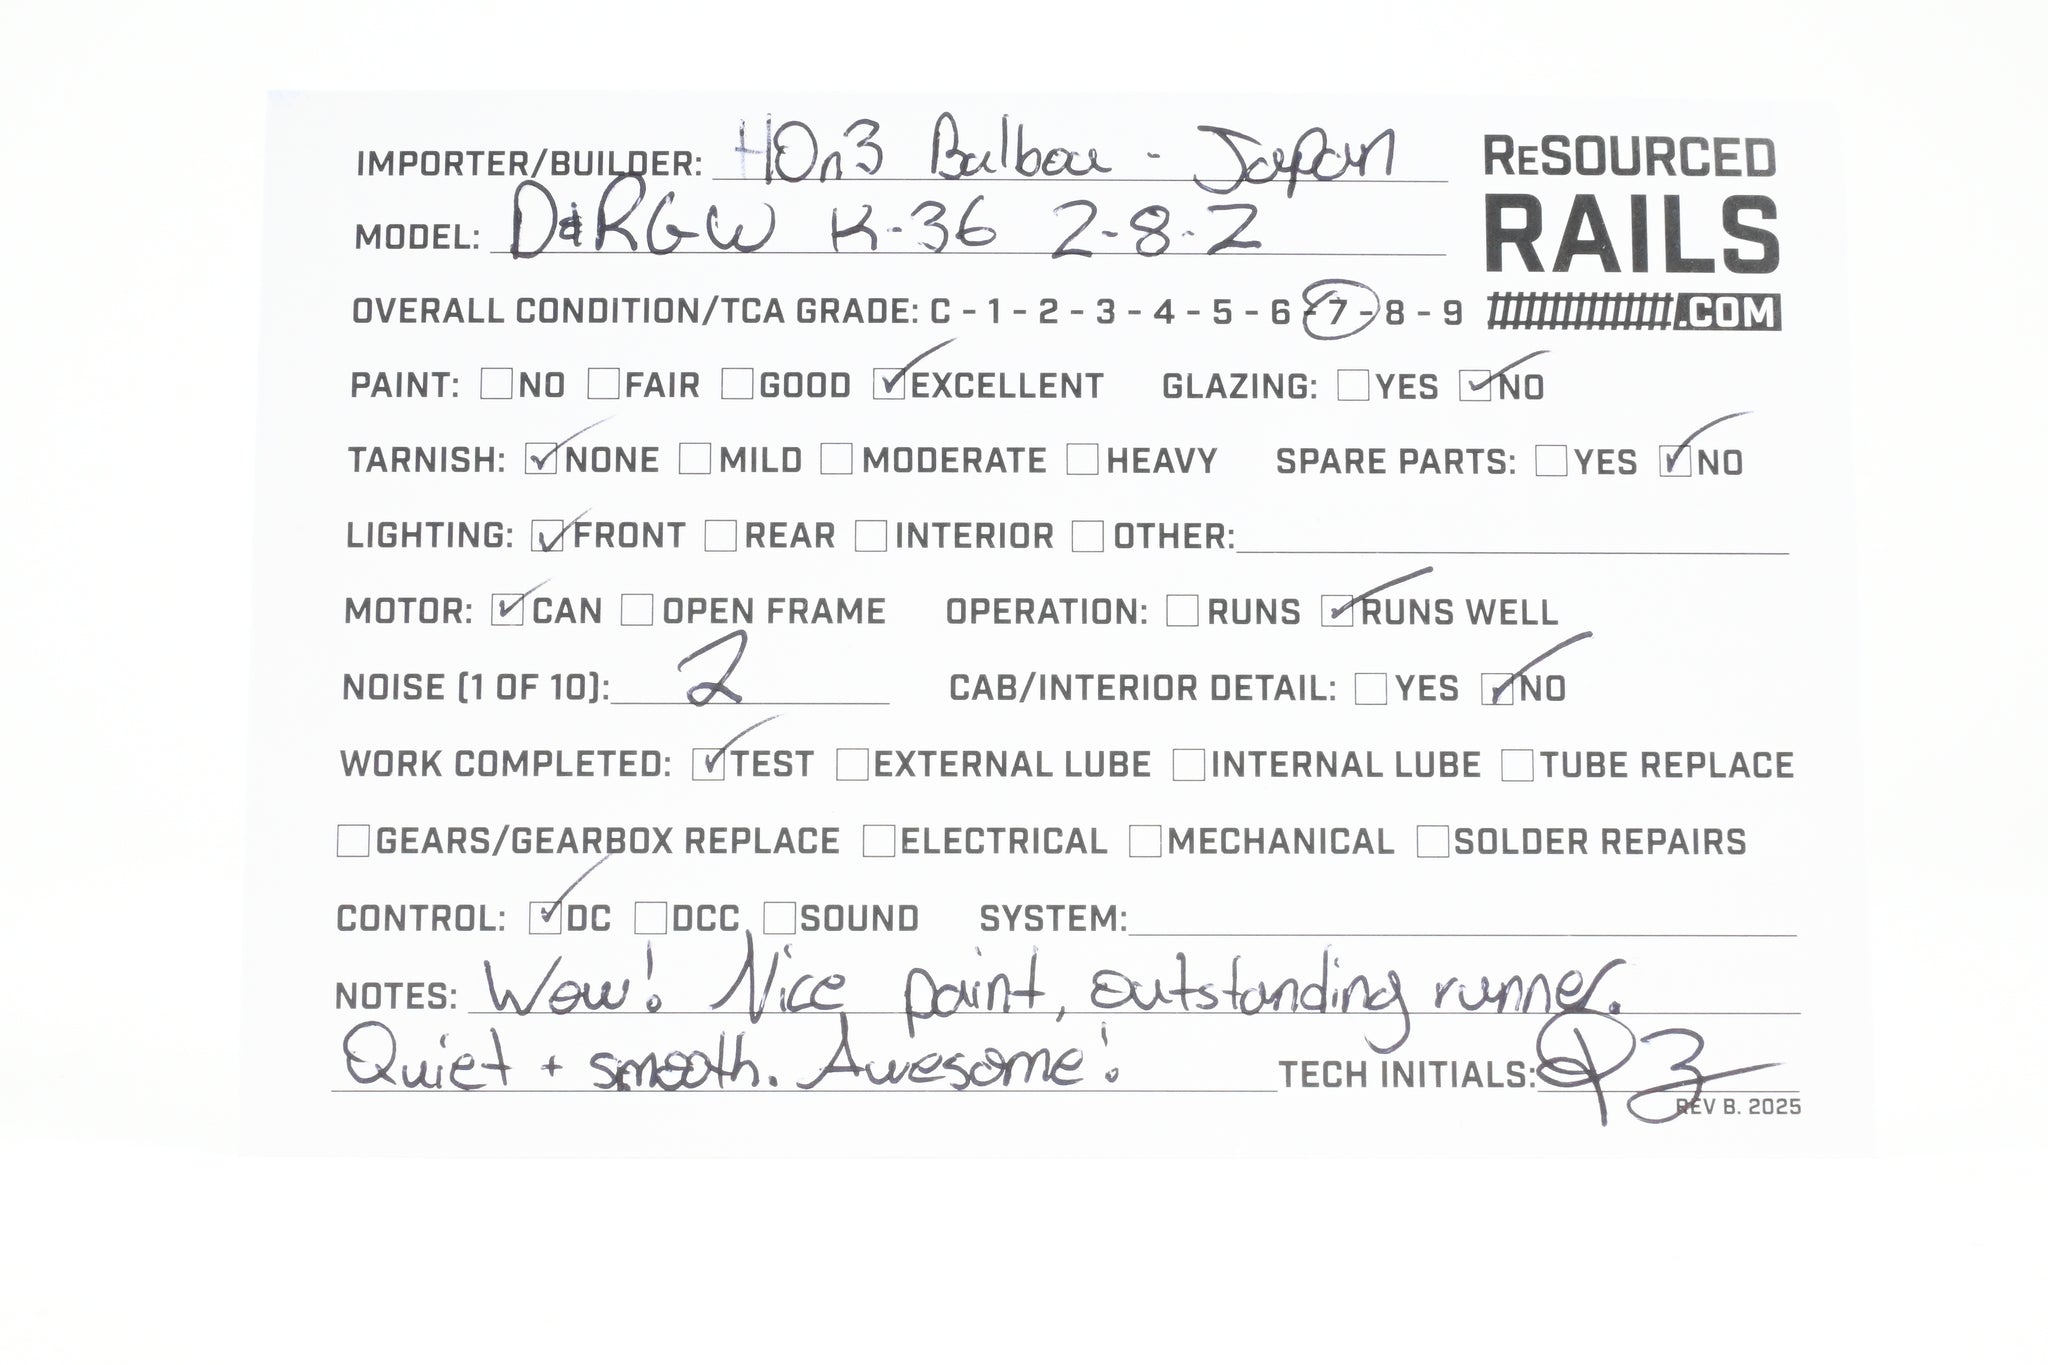 IMPORTER/BUILDER: HOn3 Balboa - Japan
ReSOURCED
RAILS
.COM
MODEL: D&RGW K-36 2-8-2
OVERALL CONDITION/TCA GRADE: C - 1 - 2 - 3 - 4 - 5 - 6 - 7 - 8 - 9
PAINT: ☐NO ☐FAIR ☐GOOD ☑EXCELLENT GLAZING: ☐YES ☑NO
TARNISH: ☑NONE ☐MILD ☐MODERATE ☐HEAVY SPARE PARTS: ☐YES ☑NO
LIGHTING: ☑FRONT ☐REAR ☐INTERIOR ☐OTHER:
MOTOR: ☑CAN ☐OPEN FRAME OPERATION: ☐RUNS ☑RUNS WELL
NOISE (1 OF 10): 2 CAB/INTERIOR DETAIL: ☐YES ☑NO
WORK COMPLETED: ☑TEST ☐EXTERNAL LUBE ☐INTERNAL LUBE ☐TUBE REPLACE
☐GEARS/GEARBOX REPLACE ☐ELECTRICAL ☐MECHANICAL ☐SOLDER REPAIRS
CONTROL: ☑DC ☐DCC ☐SOUND SYSTEM:
NOTES: Wow! Nice paint, outstanding runner.
Quiet + smooth. Awesome! TECH INITIALS:
REV B. 2025